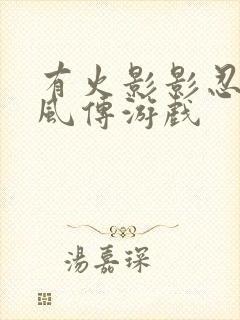 有火影影忍
風傳游戲
湯嘉琛